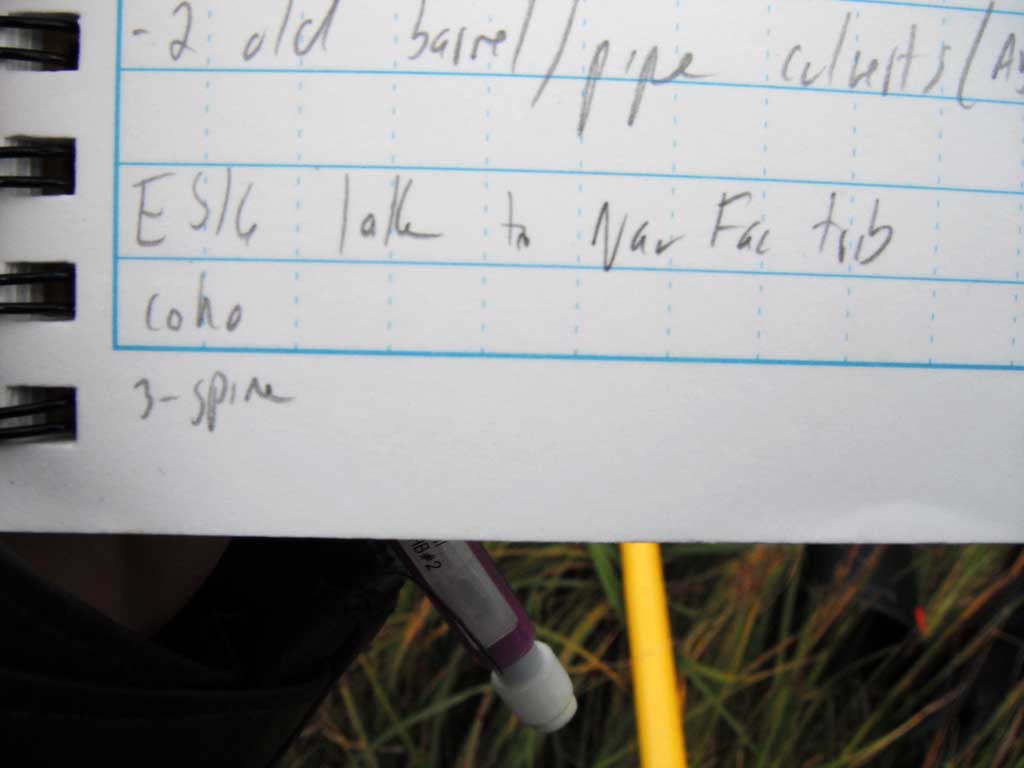 - 2 old barrel/pipe culverts (
ESK lake to Nav Fac trib
coho
3-spine
HB#2